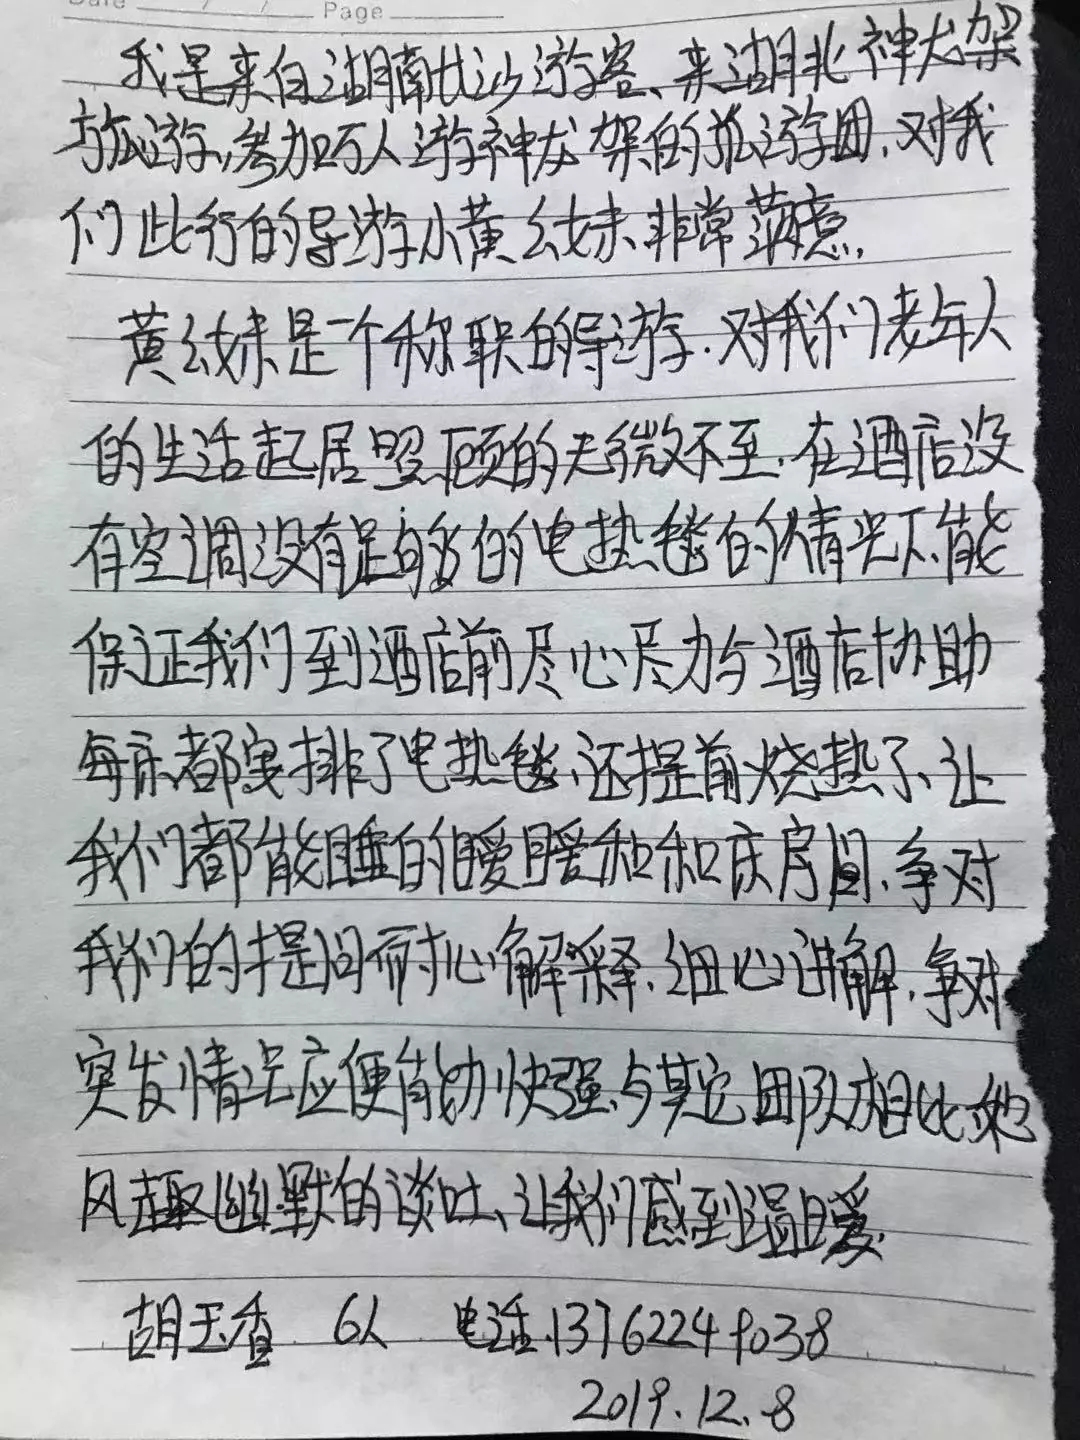 Date / / Page
我是来自湖南长沙游客、来湖北神龙架
旅游,参加万人游神龙架的旅游团,对我
们此行的导游小黄幺妹非常满意,
黄幺妹是一个称职的导游.对我们老年人
的生活起居照顾的无微不至.在酒店没
有空调没有足够的电热毯的情况下、能
保证我们到酒店前尽心尽力与酒店协助
每床都安排了电热毯、还提前烧热了、让
我们都能睡的暖暖和和床房间、争对
我们的提问耐心解释.细心讲解,争对
突发情况应便能力快强、与其它团队相比她
风趣幽默的谈吐、让我们感到温暖.
胡玉香 6人 电话.13762249038
2019.12.8